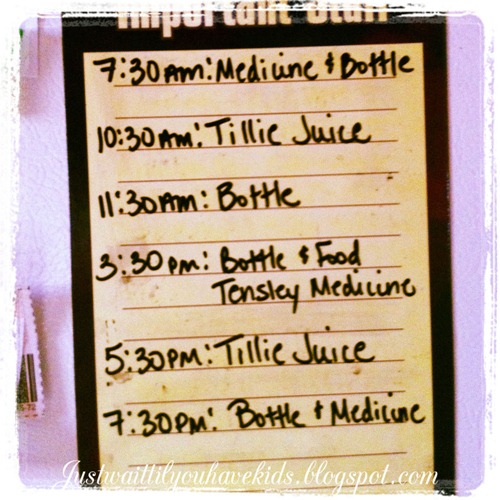 Important Stuff
7:30AM: Medicine & Bottle
10:30AM: Tillie Juice
11:30AM: Bottle
3:30PM: Bottle & Food
Tensley Medicine
5:30PM: Tillie Juice
7:30PM: Bottle & Medicine
Justwaittilyouhavekids.blogspot.com